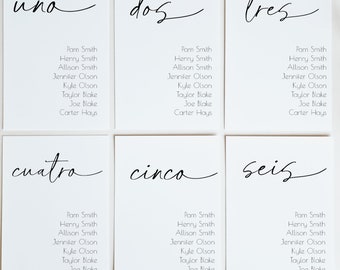 uno
Pam Smith
Henry Smith
Allison Smith
Jennifer Olson
Kyle Olson
Taylor Blake
Joe Blake
Carter Hays
dos
Pam Smith
Henry Smith
Allison Smith
Jennifer Olson
Kyle Olson
Taylor Blake
Joe Blake
Carter Hays
tres
Pam Smith
Henry Smith
Allison Smith
Jennifer Olson
Kyle Olson
Taylor Blake
Joe Blake
Carter Hays
cuatro
Pam Smith
Henry Smith
Allison Smith
Jennifer Olson
Kyle Olson
Taylor Blake
Joe Blake
cinco
Pam Smith
Henry Smith
Allison Smith
Jennifer Olson
Kyle Olson
Taylor Blake
Joe Blake
seis
Pam Smith
Henry Smith
Allison Smith
Jennifer Olson
Kyle Olson
Taylor Blake
Joe Blake